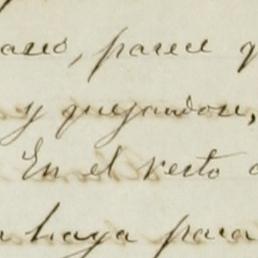 parece
y quejandose,
En el resto
haya para